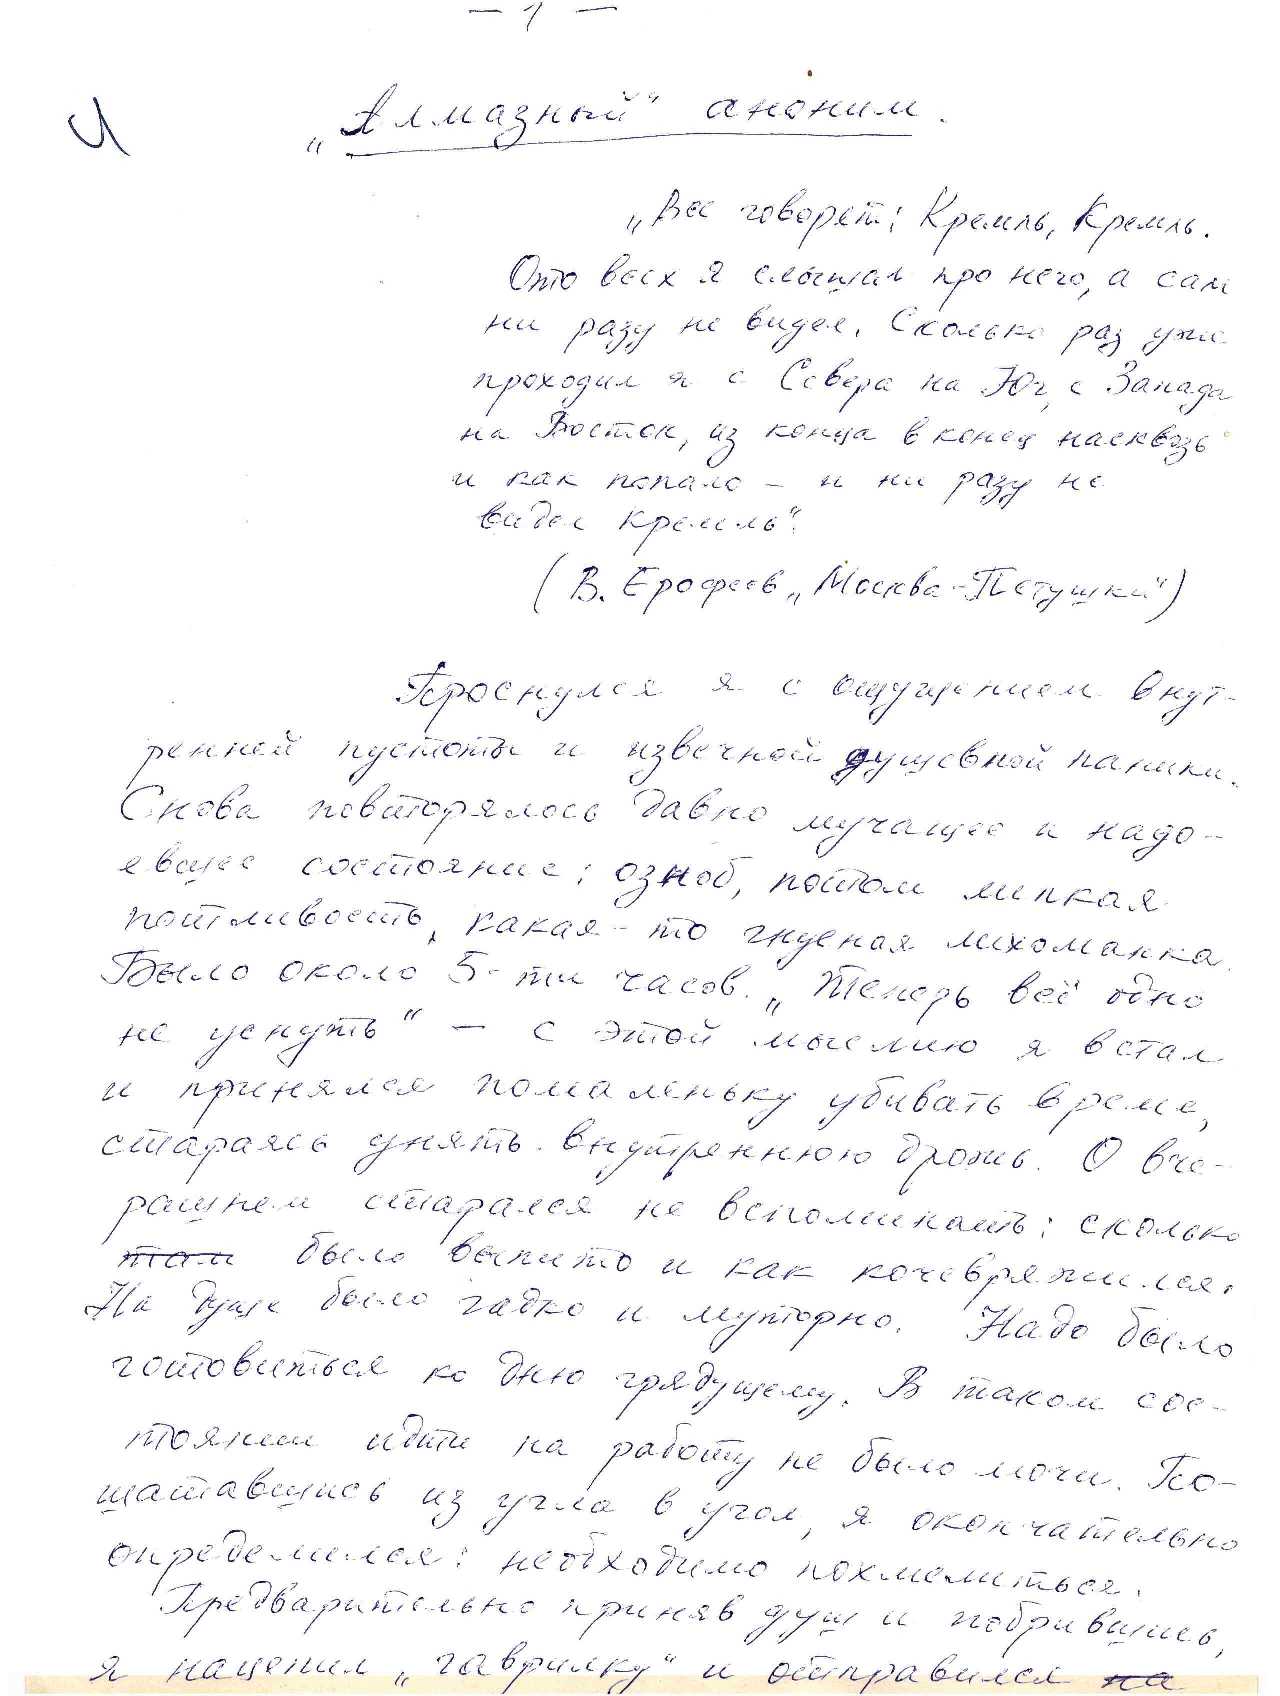 — 1 —
И
„Алмазный“ аноним.
„Все говорят: Кремль, Кремль.
Ото всех я слышал про него, а сам
ни разу не видел. Сколько раз уже
проходил я с Севера на Юг, с Запада
на Восток, из конца в конец насквозь
и как попало – и ни разу не
видел Кремль“.
(В. Ерофеев „Москва-Петушки“)
Проснулся я с ощущением внут-
ренней пустоты и извечной душевной паники.
Снова повторялось давно мучащее и надо-
евшее состояние: озноб, потом липкая
потливость, какая-то гнусная лихоманка.
Было около 5-ти часов. „Теперь всё одно
не уснуть“ – с этой мыслию я встал
и принялся помаленьку убивать время,
стараясь унять внутреннюю дрожь. О вче-
рашнем старался не вспоминать: сколько
там было выпито и как кочевряжился.
На душе было гадко и муторно. Надо было
готовиться ко дню грядущему. В таком сос-
тоянии идти на работу не было мочи. По-
шатавшись из угла в угол, я окончательно
определился: необходимо похмелиться.
Предварительно приняв душ и побрившись,
я нацепил „гаврилку“ и отправился на